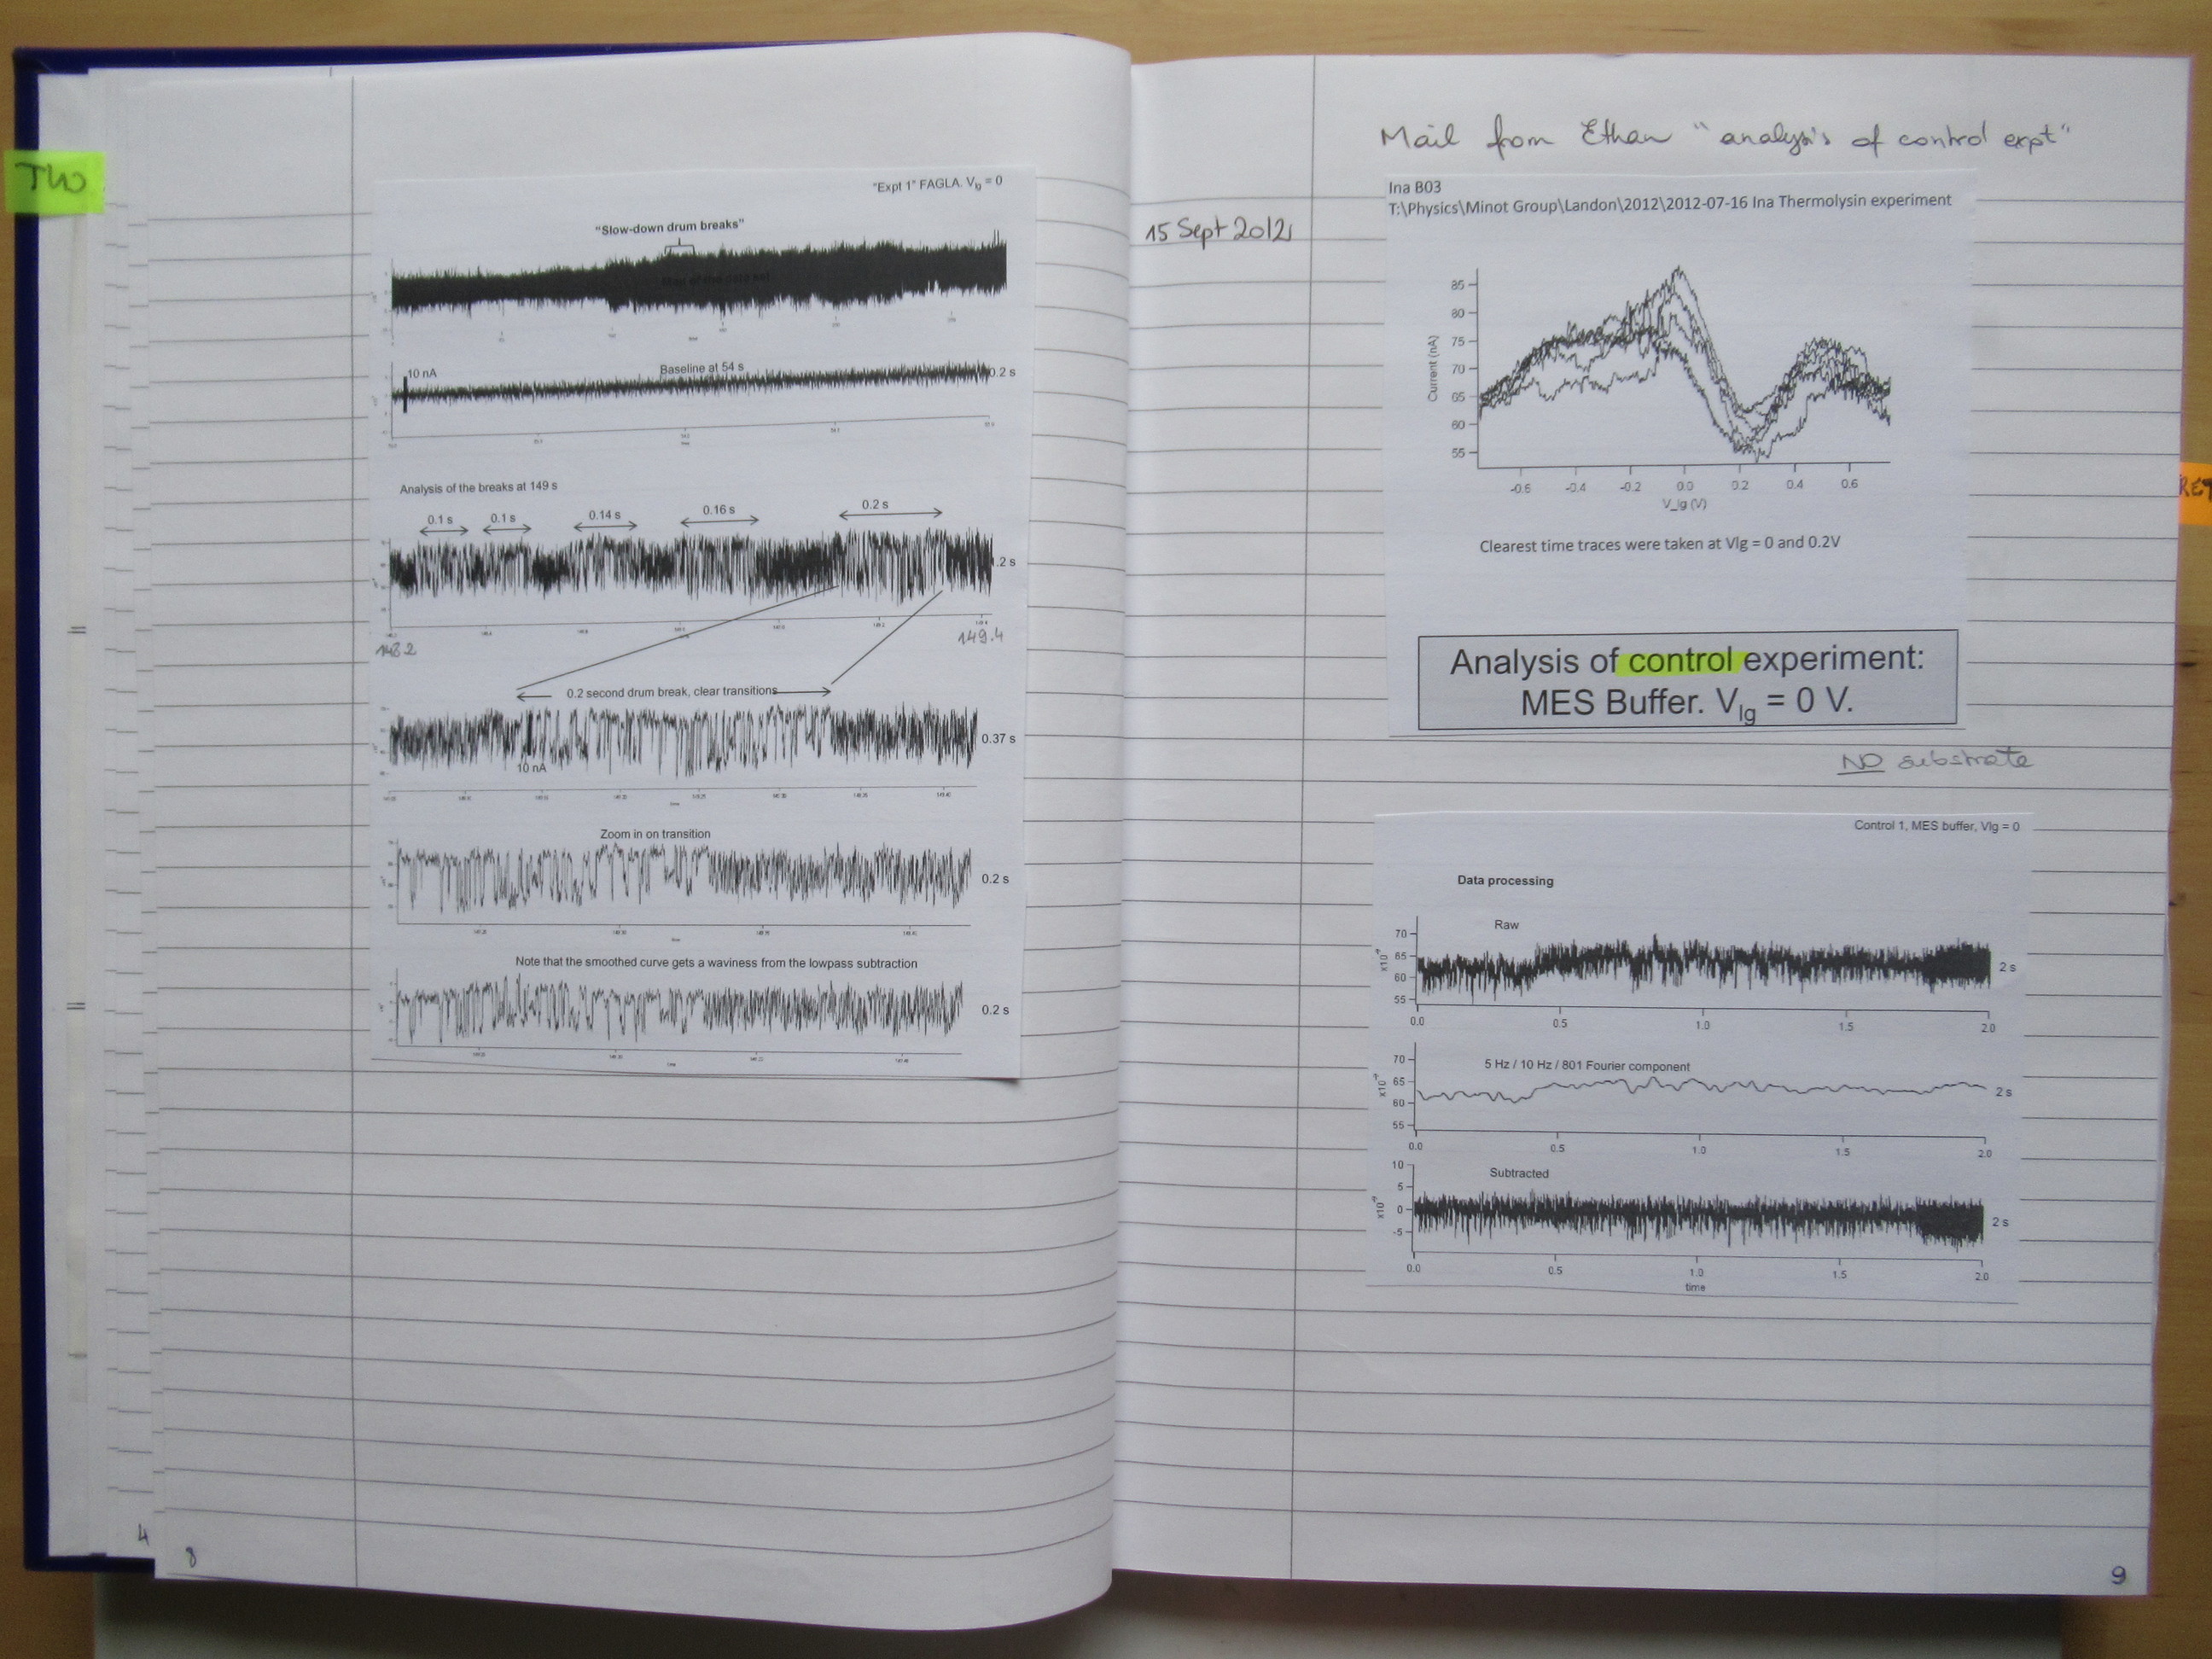 TWO
"Expt 1" FAGLA. Vlg = 0
"Slow-down drum breaks"
10 nA
Baseline at 54 s
0.2 s
Analysis of the breaks at 149 s
0.1 s 0.1 s 0.14 s 0.16 s 0.2 s
.2 s
149.4
0.2 second drum break, clear transitions
0.37 s
10 nA
Zoom in on transition
0.2 s
Note that the smoothed curve gets a waviness from the lowpass subtraction
0.2 s
4
8
Mail from Ethan "analysis of control expt"
15 Sept 2012
Ina B03
T:\Physics\Minot Group\Landon\2012\2012-07-16 Ina Thermolysin experiment
85
80
75
70
65
60
55
Current (nA)
-0.6 -0.4 -0.2 0.0 0.2 0.4 0.6
V_lg (V)
Clearest time traces were taken at Vlg = 0 and 0.2V
RET
Analysis of control experiment:
MES Buffer. Vlg = 0 V.
NO substrate
Control 1, MES buffer, Vlg = 0
Data processing
Raw
70
65
60
55
x10⁻⁹
2 s
0.0 0.5 1.0 1.5 2.0
5 Hz / 10 Hz / 801 Fourier component
70
65
60
55
x10⁻⁹
2 s
0.0 0.5 1.0 1.5 2.0
Subtracted
10
5
0
-5
x10⁻⁹
2 s
0.0 0.5 1.0 1.5 2.0
time
9